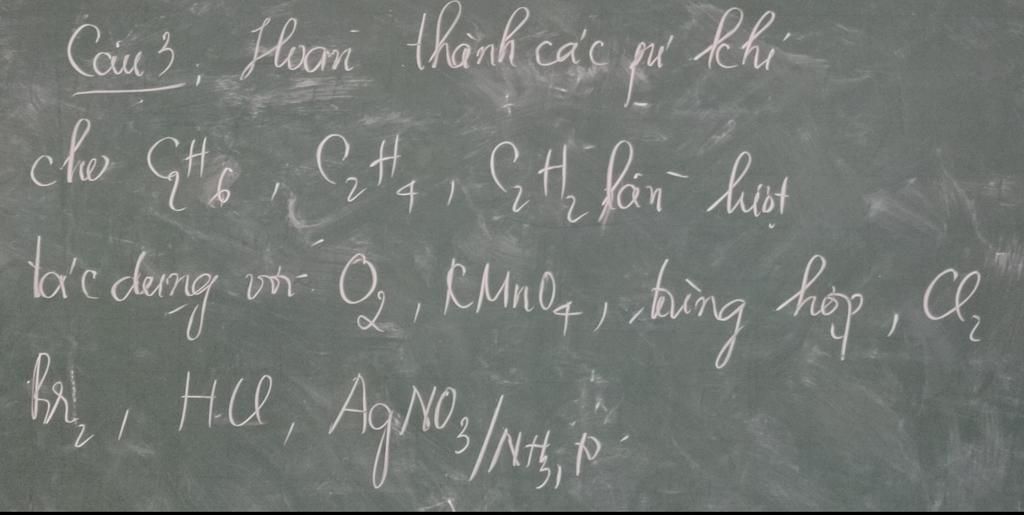 Câu 3: Hoàn thành các pứ khi
cho C2H6, C2H4, C2H2 lần lượt
tác dụng với O2, KMnO4, trùng hợp, Cl2
Br2, HCl, AgNO3/NH3, p